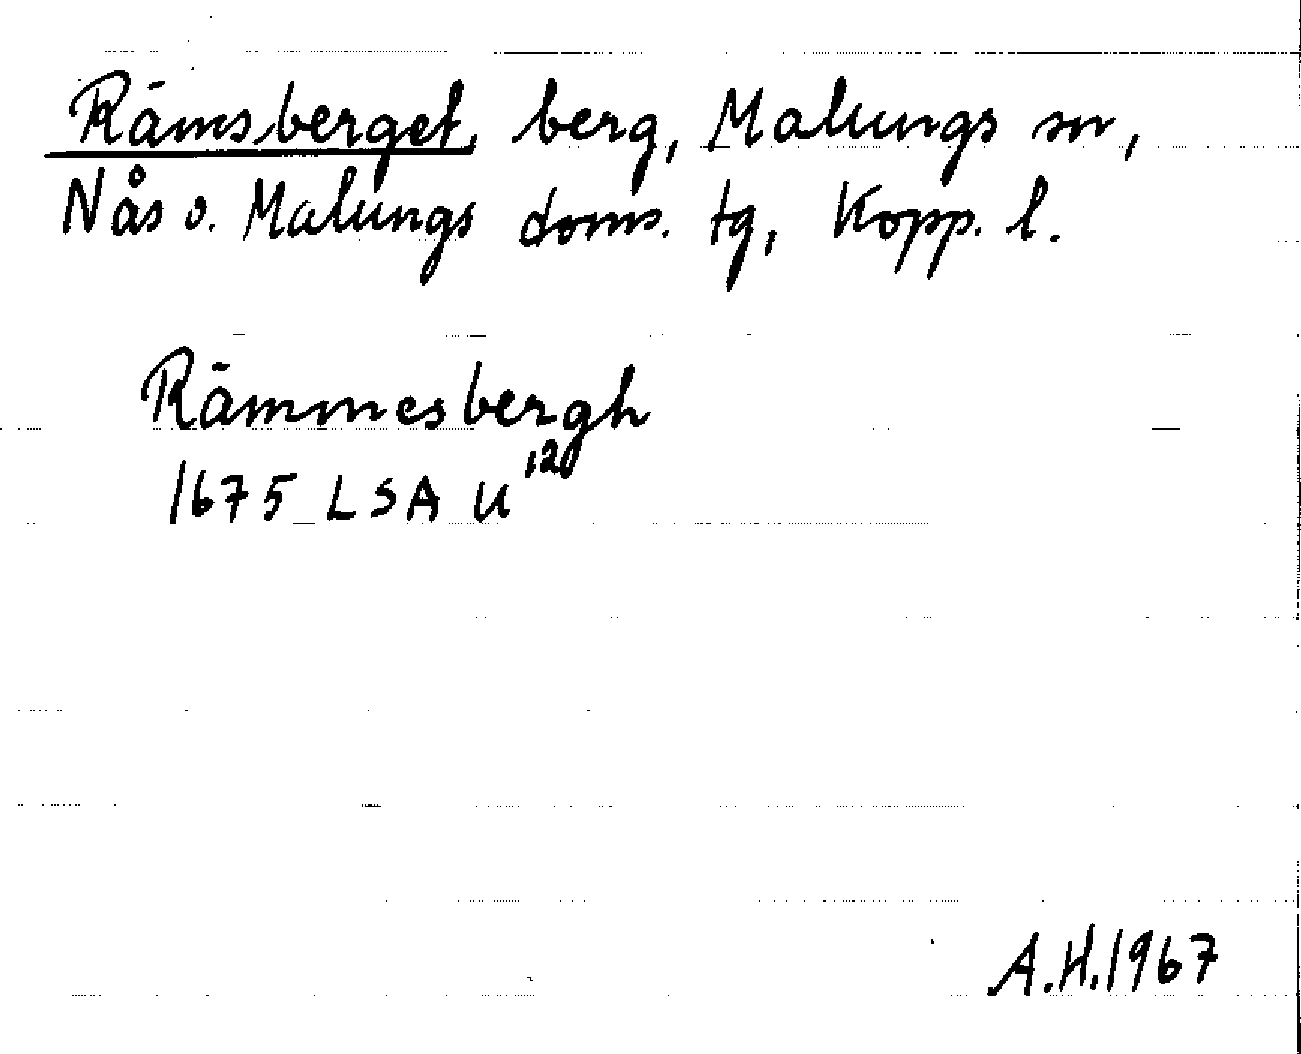 Rämsberget, berg, Malungs sn,
Nås o. Malungs doms. tg, Kopp. l.
Rämmesbergh
1675 LSA U 12
A.H. 1967